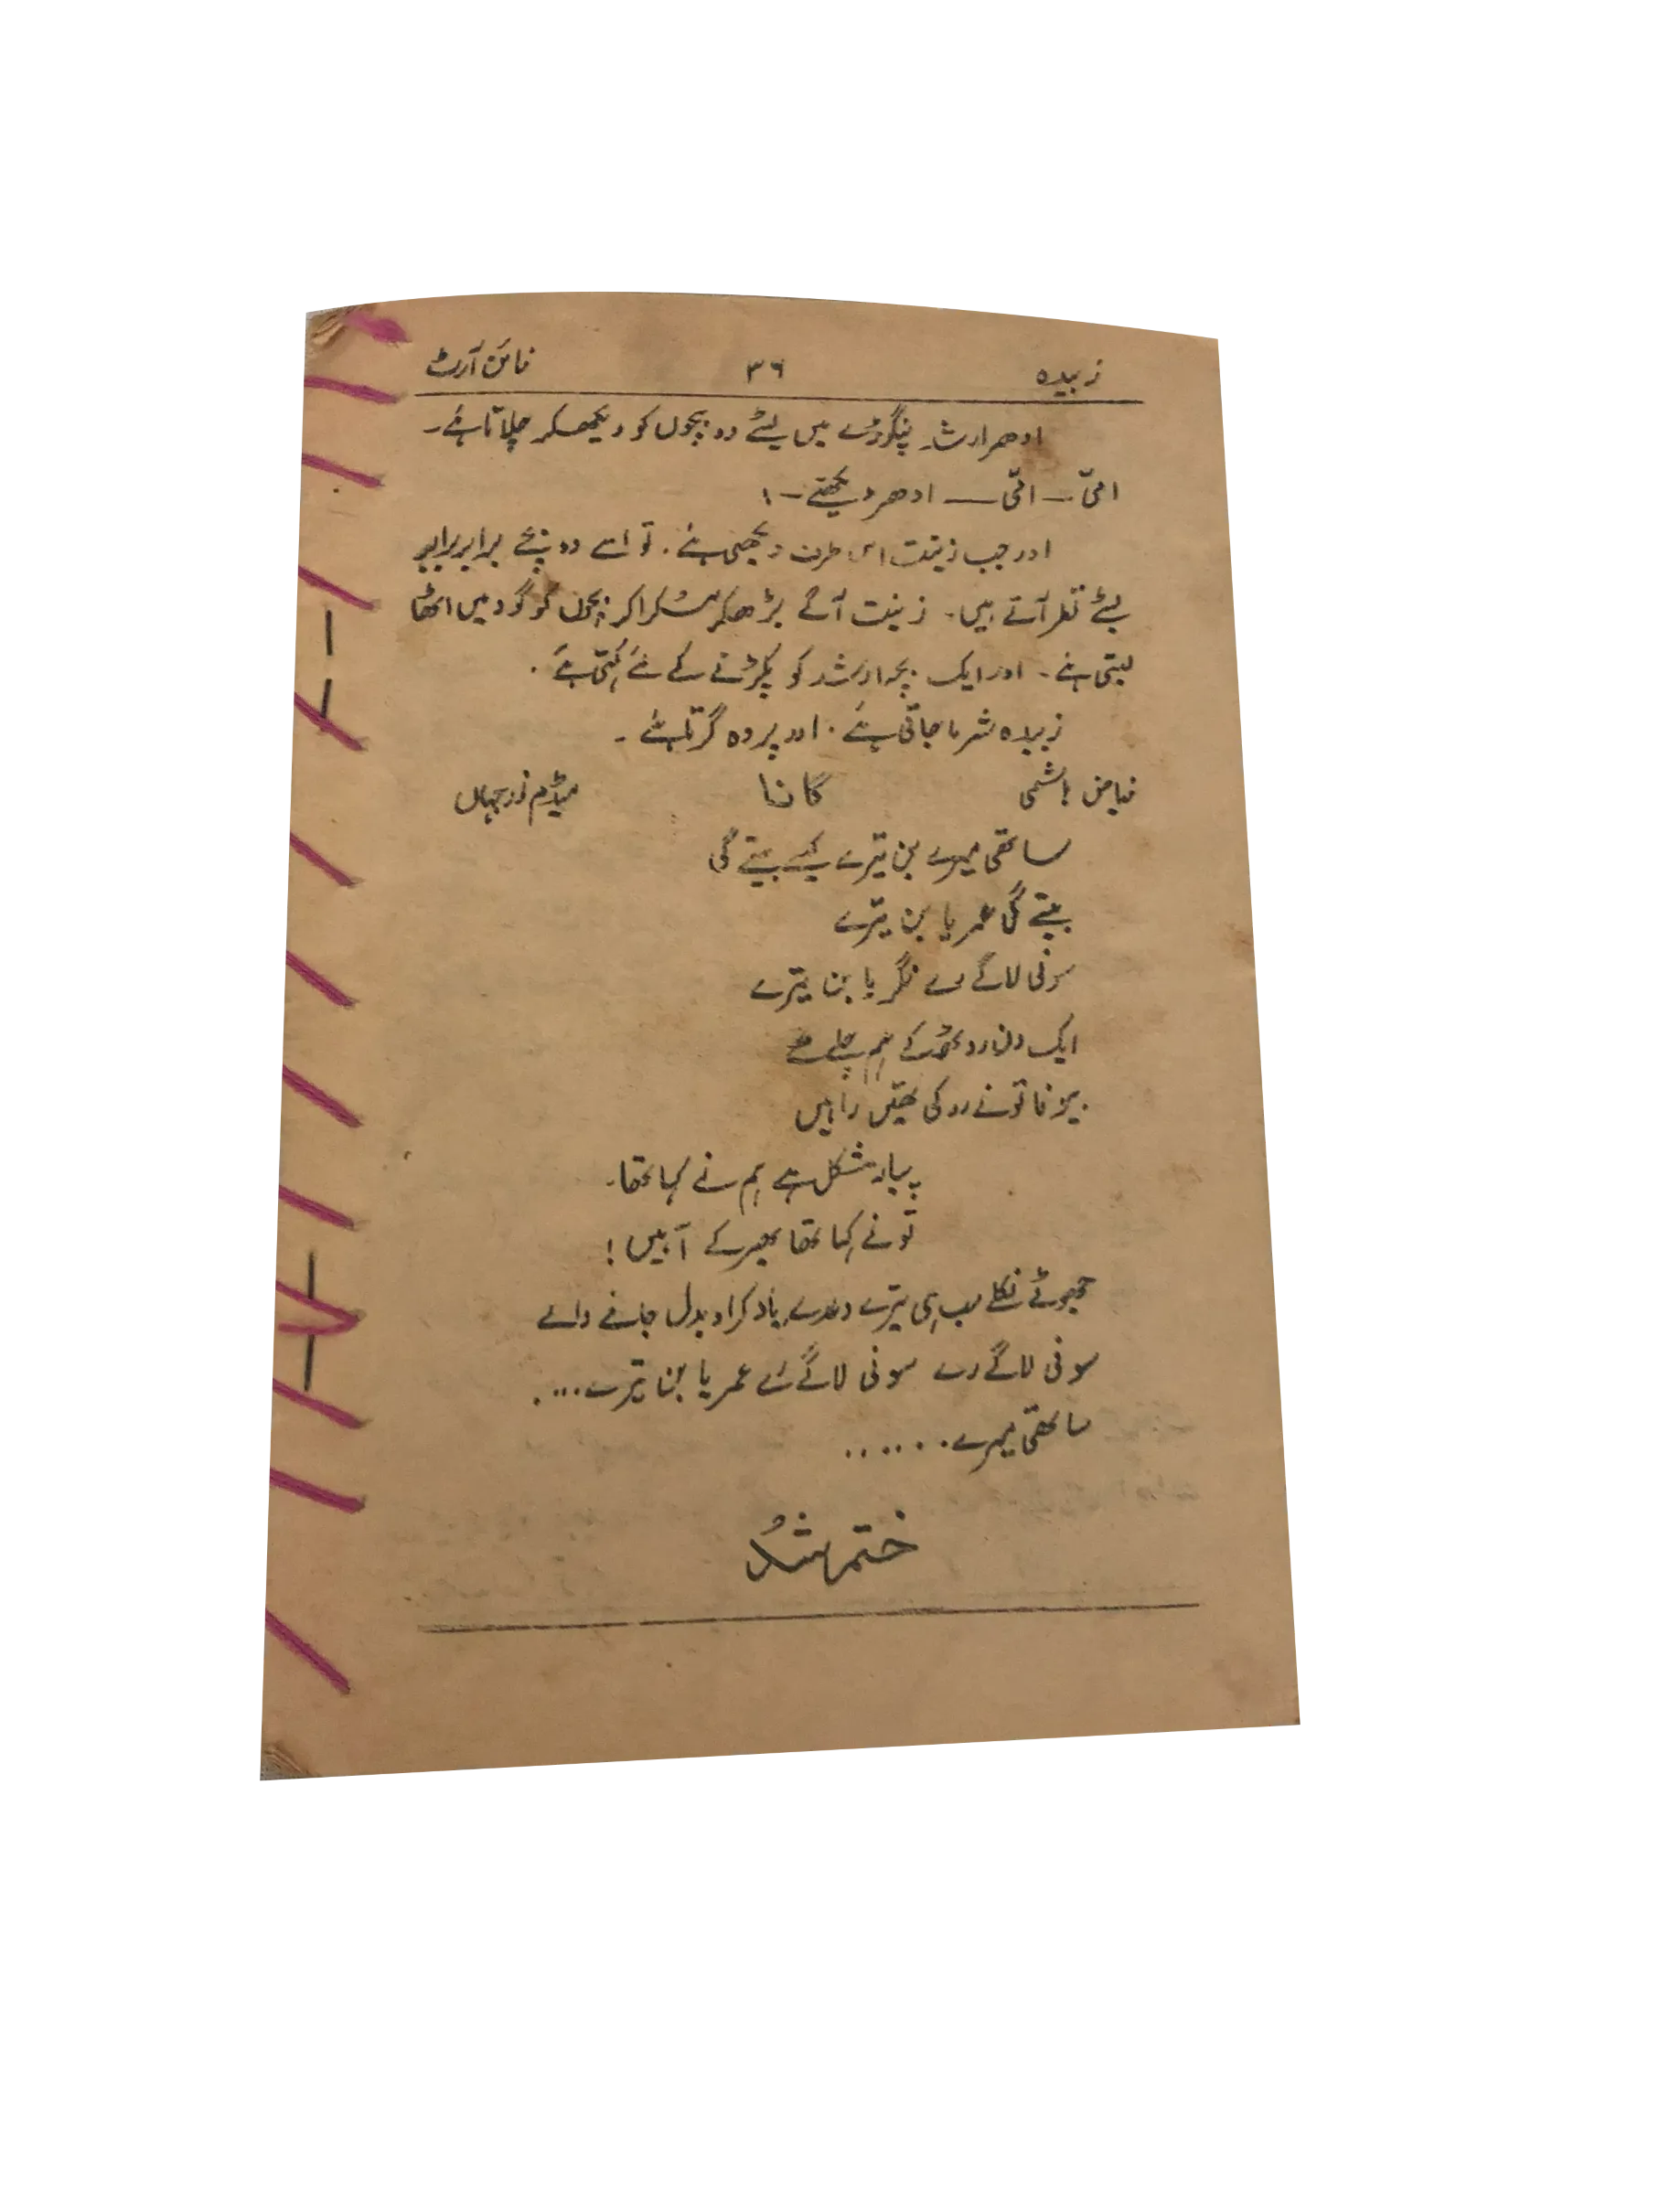 زبیدہ ۳۶ فائن آرٹ
ادھر ارشد پنگوڑے میں لیٹے دو بچوں کو دیکھکر چلاتا ہے۔
امّی — امّی — ادھر دیکھئے — !
اور جب زینت اس طرف دیکھتی ہے۔ تو اسے دو بچے برابر برابر
لیٹے نظر آتے ہیں۔ زینت آگے بڑھکر مسکرا کر بچوں کو گود میں اٹھا
لیتی ہے۔ اور ایک بچہ ارشد کو پکڑنے کے لئے کہتی ہے۔
زبیدہ شرما جاتی ہے۔ اور پردہ گرتا ہے۔
فیاض ہاشمی گانا میڈم نورجہاں
ساتھی میرے بن تیرے کیسے بیتے گی
بیتے گی عمریا بن تیرے
سونی لاگے رے نگریا بنا تیرے
ایک دن روٹھ کے ہم چلے تھے
بیوفا تو نے روکی تھیں راہیں
پیار مشکل ہے ہم نے کہا تھا۔
تو نے کہا تھا بھر کے آہیں!
جھوٹے نکلے سب ہی تیرے وعدے یاد کر او بدل جانے والے
سونی لاگے رے سونی لاگے رے عمریا بنا تیرے....
ساتھی میرے......
ختم شُد